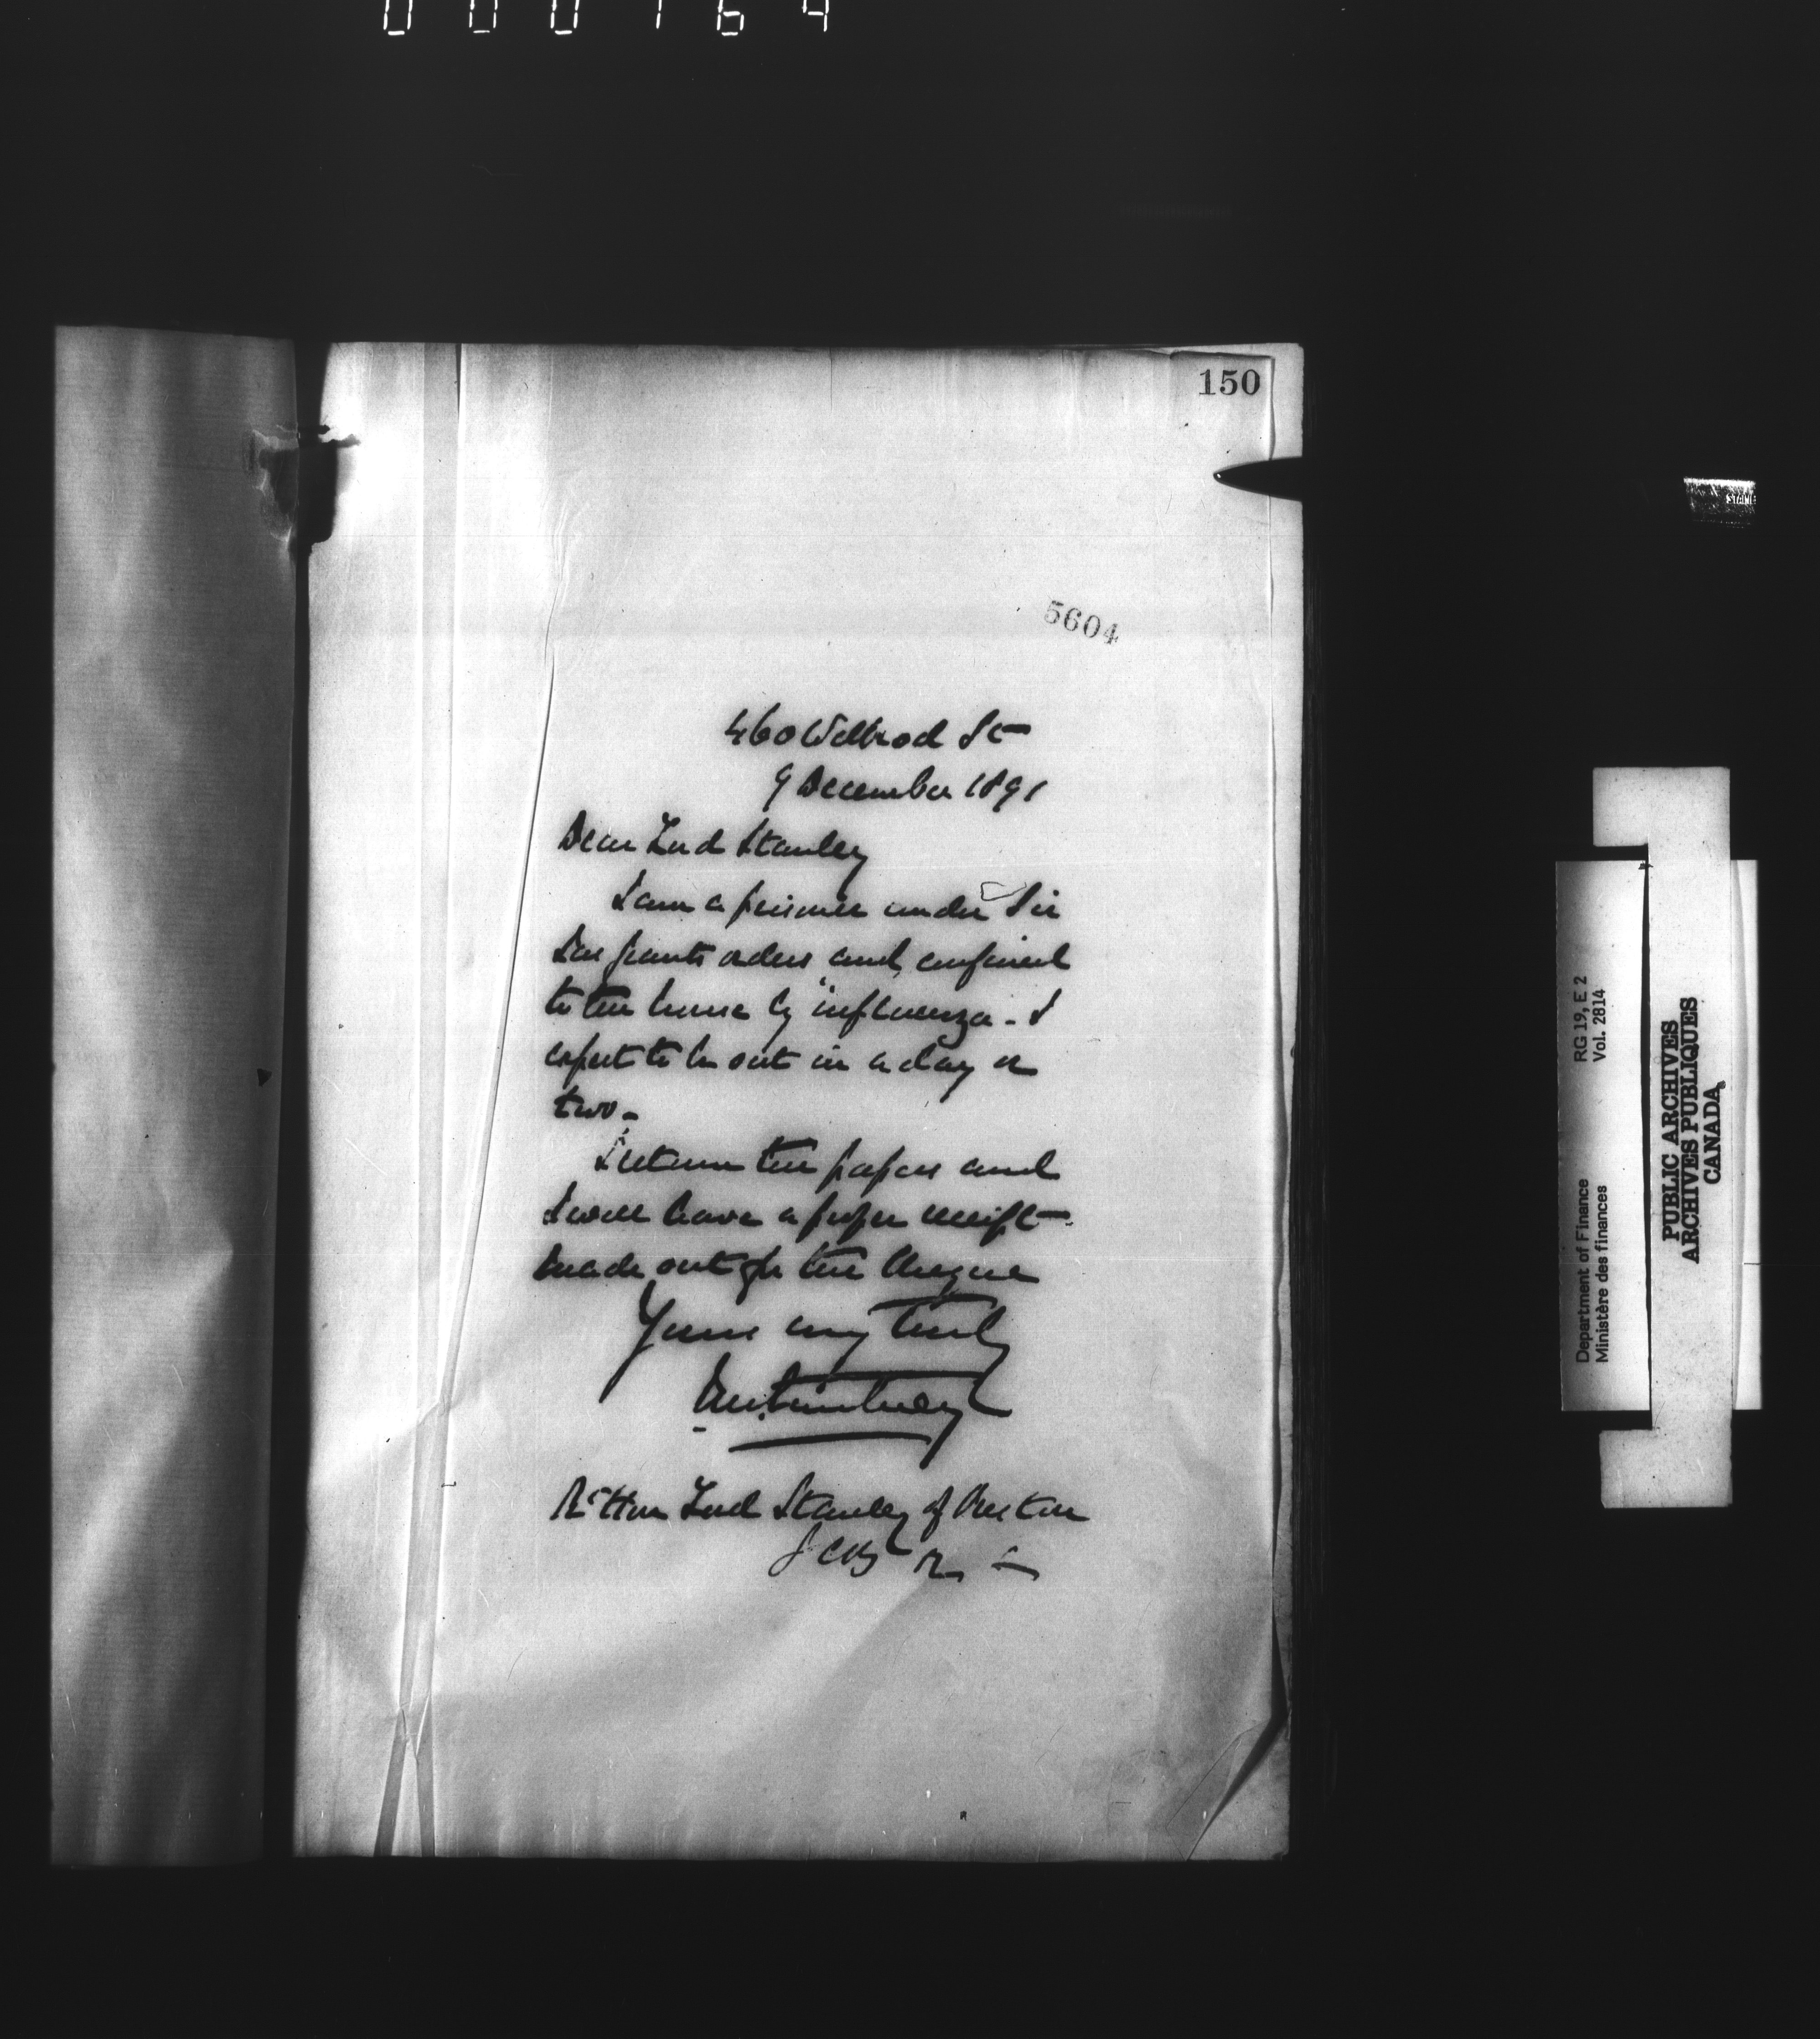 000164
150
5604
460 Wilbrod St
9 December 1891
Dear Lord Stanley
I am a prisoner under Sir
Jas Grants orders and confined
to the house by "influenza - I
expect to be out in a day or
two -
I return the papers and
I will have a proper receipt
made out for the cheque
Yours very truly
Rt Hon Lord Stanley of Preston
GCB
Department of Finance RG 19, E 2
Ministère des finances Vol. 2814
PUBLIC ARCHIVES
ARCHIVES PUBLIQUES
CANADA